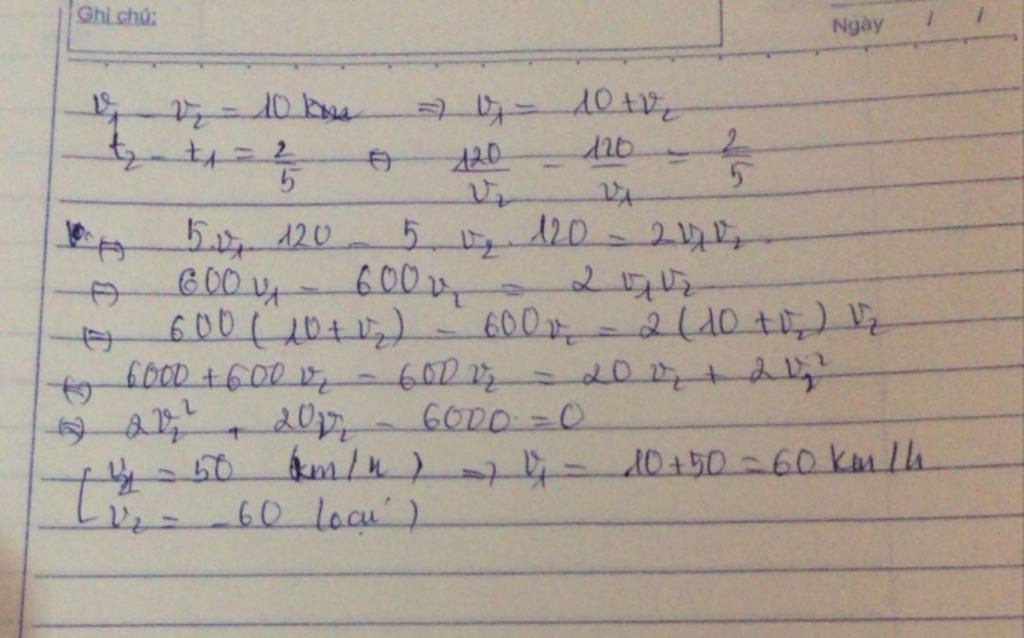 Ghi chú:
Ngày / /
v₁ - v₂ = 10 km ⇒ v₁ = 10 + v₂
t₂ - t₁ = 2/5 ⇔ 120/v₂ - 120/v₁ = 2/5
⇔ 5.v₁. 120 - 5. v₂ . 120 = 2v₁v₂
⇔ 600v₁ - 600v₂ = 2 v₁v₂
⇔ 600(10+v₂) - 600v₂ = 2(10+v₂) v₂
⇔ 6000 + 600v₂ - 600v₂ = 20 v₂ + 2v₂²
⇔ 2v₂² + 20v₂ - 6000 = 0
[ v₂ = 50 (km/h) ⇒ v₁ = 10+50 = 60 km/h
v₂ = -60 (loại)